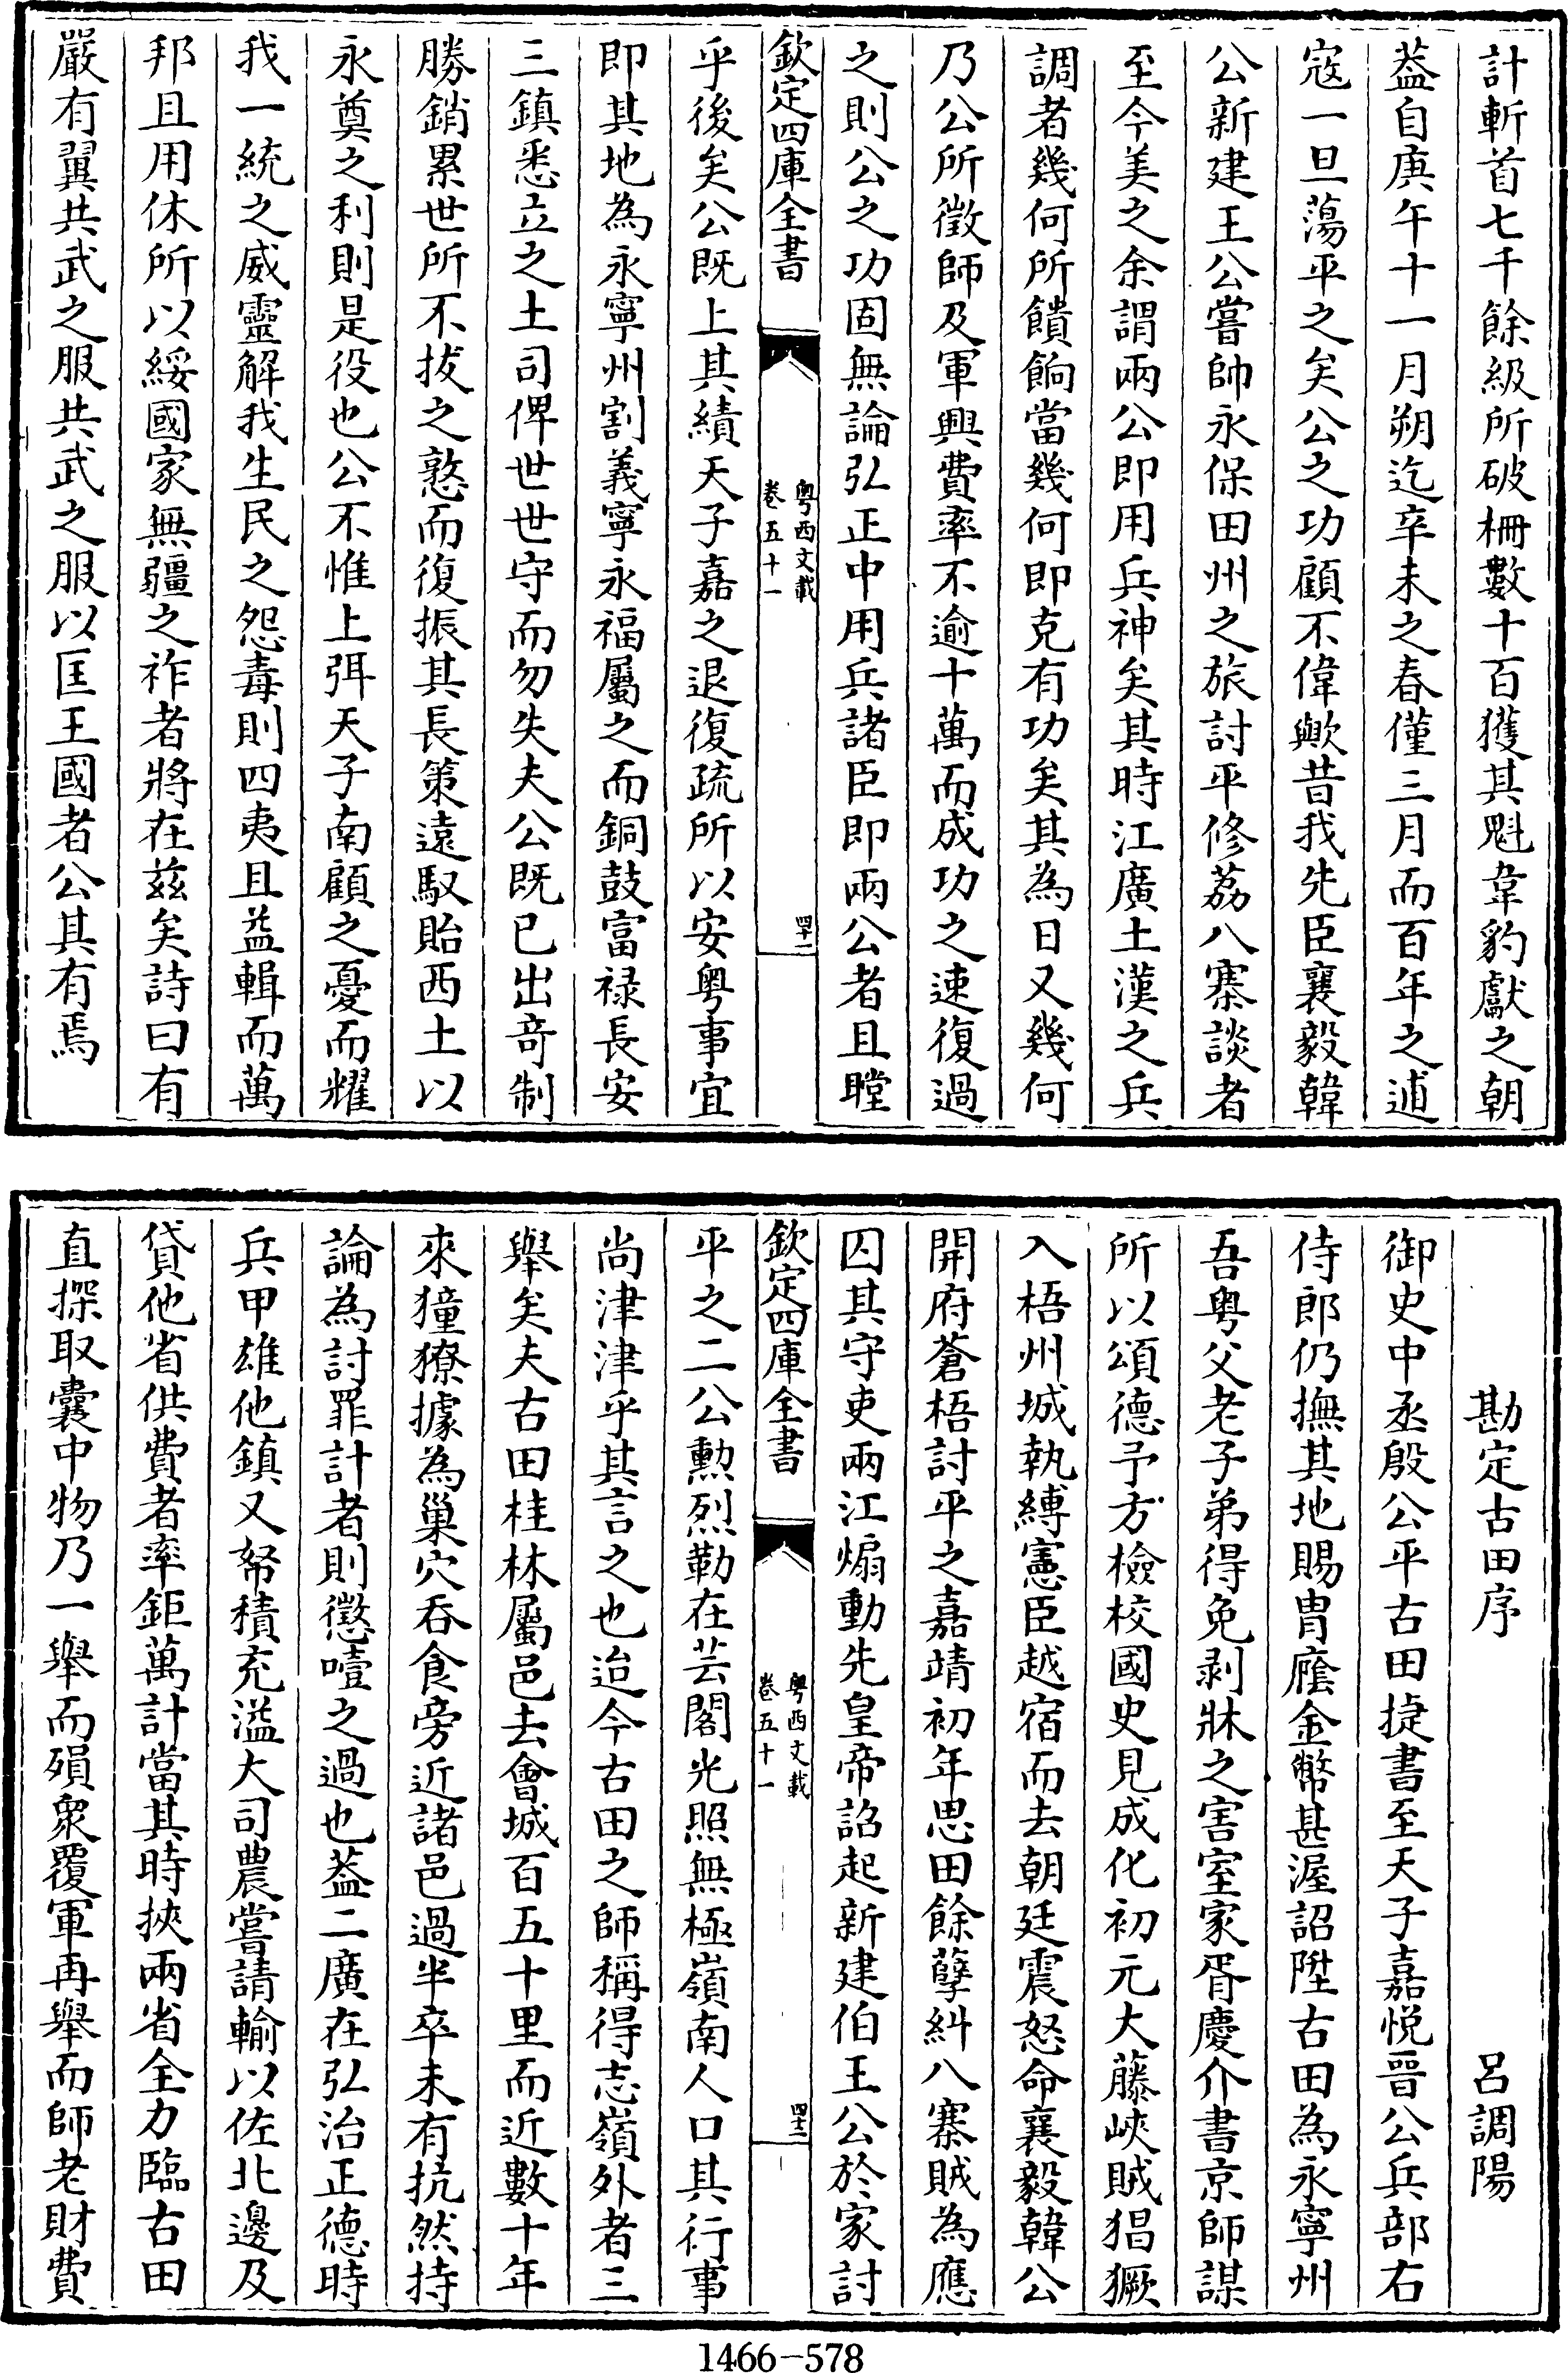 計斬首七千餘級所破柵數十百獲其魁韋豹獻之朝
葢自庚午十一月朔迄辛未之春僅三月而百年之逋
寇一旦蕩平之矣公之功顧不偉歟昔我先臣襄毅韓
公新建王公嘗帥永保田州之旅討平修荔八寨談者
至今美之余謂兩公即用兵神矣其時江廣土漢之兵
調者幾何所饋餉當幾何即克有功矣其為日又幾何
乃公所徵師及軍興費率不逾十萬而成功之速復過
之則公之功固無論弘正中用兵諸臣即兩公者且瞠
欽定四庫全書
粤西文載
卷五十一
四十一
乎後矣公既上其績天子嘉之退復疏所以安粤事宜
即其地為永寧州割義寧永福屬之而銅鼓富禄長安
三鎮悉立之土司俾世世守而勿失夫公既已出奇制
勝銷累世所不拔之憝而復振其長策遠馭貽西土以
永奠之利則是役也公不惟上弭天子南顧之憂而耀
我一統之威靈解我生民之怨毒則四夷且益輯而萬
邦且用休所以綏國家無疆之祚者將在茲矣詩曰有
嚴有翼共武之服共武之服以匡王國者公其有焉
勘定古田序 吕調陽
御史中丞殷公平古田捷書至天子嘉悦晉公兵部右
侍郎仍撫其地賜胄廕金幣甚渥詔陞古田為永寧州
吾粤父老子弟得免剥牀之害室家胥慶介書京師謀
所以頌德予方檢校國史見成化初元大藤峽賊猖獗
入梧州城執縛憲臣越宿而去朝廷震怒命襄毅韓公
開府蒼梧討平之嘉靖初年思田餘孽糾八寨賊為應
囚其守吏兩江煽動先皇帝詔起新建伯王公於家討
欽定四庫全書
粤西文載
卷五十一
四十二
平之二公勲烈勒在芸閣光照無極嶺南人口其行事
尚津津乎其言之也迨今古田之師稱得志嶺外者三
舉矣夫古田桂林屬邑去會城百五十里而近數十年
來獞獠據為巢穴吞食旁近諸邑過半卒未有抗然持
論為討罪計者則懲噎之過也葢二廣在弘治正德時
兵甲雄他鎮又帑積充溢大司農嘗請輸以佐北邊及
貸他省供費者率鉅萬計當其時挾兩省全力臨古田
直探取囊中物乃一舉而殞衆覆軍再舉而師老財費
1466-578